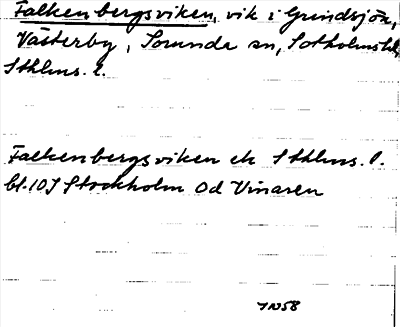 Falkenbergsviken, vik i Grindsjön,
Västerby, Sorunda sn, Sotholms hd,
Sthlms. l.
Falkenbergsviken ek Sthlms. l.
bl. 105 Stockholm Od Vinaren
1958